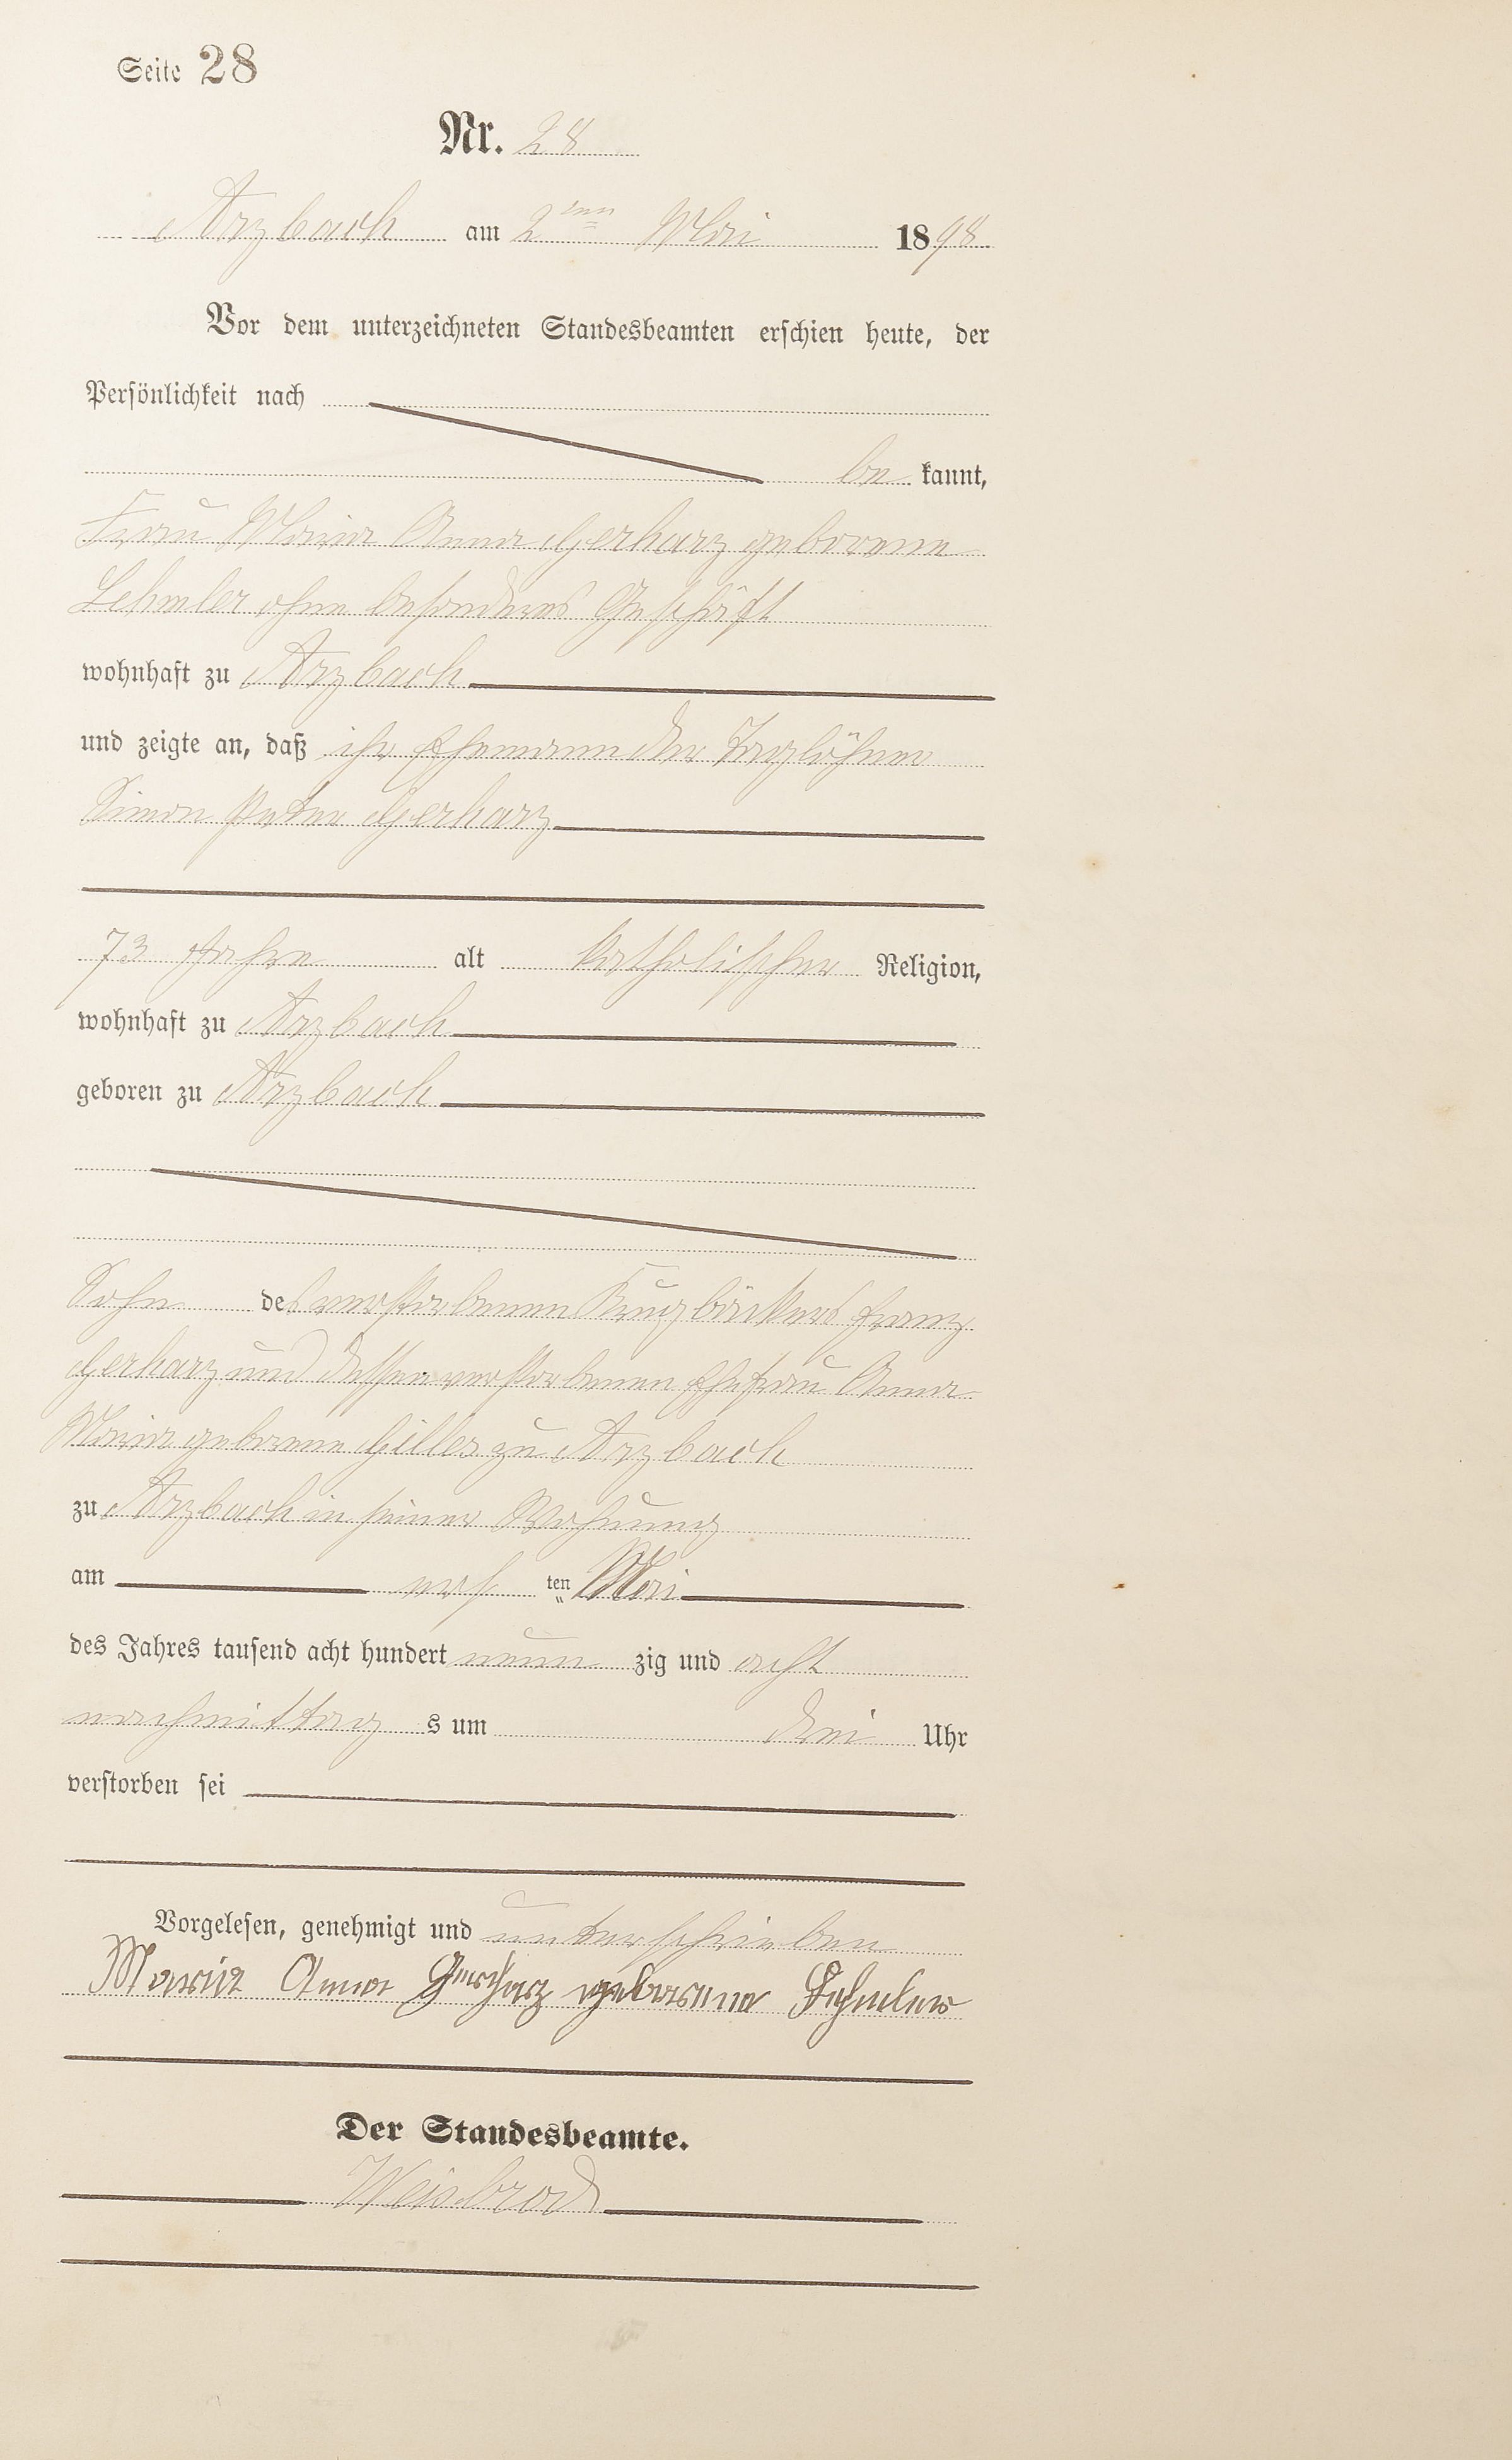 Seite 28
Nr. 28
Arzbach am 2ten Mai 1898
Vor dem unterzeichneten Standesbeamten erschien heute, der
Persönlichkeit nach
be kannt,
Frau Maria Anna Gerharz geborene
Lehmler ohne besonderes Geschäft
wohnhaft zu Arzbach
und zeigte an, daß ihr Ehemann der Taglöhner
Simon Peter Gerharz
73 Jahre alt katholischer Religion,
wohnhaft zu Arzbach
geboren zu Arzbach
Sohn des verstorbenen Krugbäckers Franz
Gerharz und dessen verstorbenen Ehefrau Anna
Maria geborene Gilles zu Arzbach
zu Arzbach in seiner Wohnung
am ten Mai
des Jahres tausend acht hundert neun zig und acht
nachmittag s um drei Uhr
verstorben sei
Vorgelesen, genehmigt und unterschrieben
Maria Anna Gerharz geborene Lehmler
Der Standesbeamte.
Weisbrod